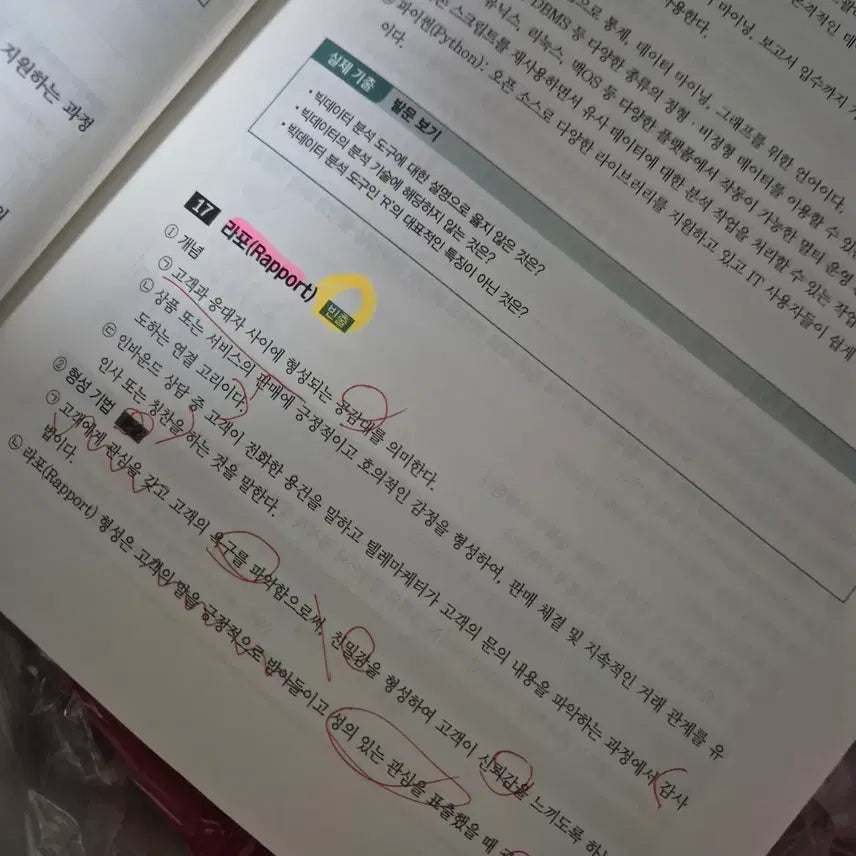 지원하는 과정
마이닝, 보고서 입수까지
으로 통계, 데이터 마이닝, 그래프를 위한 언어이다.
DBMS 등 다양한 종류의 정형·비정형 데이터를 이용할 수 있
유닉스, 리눅스, 맥OS 등 다양한 플랫폼에서 작동이 가능한 멀티 운영
스크립트를 재사용하면서 유사 데이터에 대한 분석 작업을 처리할 수 있는 작업
파이썬(Python): 오픈 소스로 다양한 라이브러리를 지원하고 있고 IT 사용자들이 쉽게
이다.
실제 기출 발문 보기
• 빅데이터 분석 도구에 대한 설명으로 옳지 않은 것은?
• 빅데이터의 분석 기술에 해당하지 않는 것은?
• 빅데이터 분석 도구인 'R'의 대표적인 특징이 아닌 것은?
17 라포(Rapport) 빈출
① 개념
㉠ 고객과 응대자 사이에 형성되는 공감대를 의미한다.
㉡ 상품 또는 서비스의 판매에 긍정적이고 호의적인 감정을 형성하여, 판매 체결 및 지속적인 거래 관계를 유
도하는 연결 고리이다.
㉢ 인바운드 상담 중 고객이 전화한 용건을 말하고 텔레마케터가 고객의 문의 내용을 파악하는 과정에서 감사
인사 또는 칭찬을 하는 것을 말한다.
② 형성 기법
㉠ 고객에게 관심을 갖고 고객의 욕구를 파악함으로써, 친밀감을 형성하여 고객이 신뢰감을 느끼도록 하는
법이다.
㉡ 라포(Rapport) 형성은 고객의 말을 긍정적으로 받아들이고 성의 있는 관심을 표출했을 때